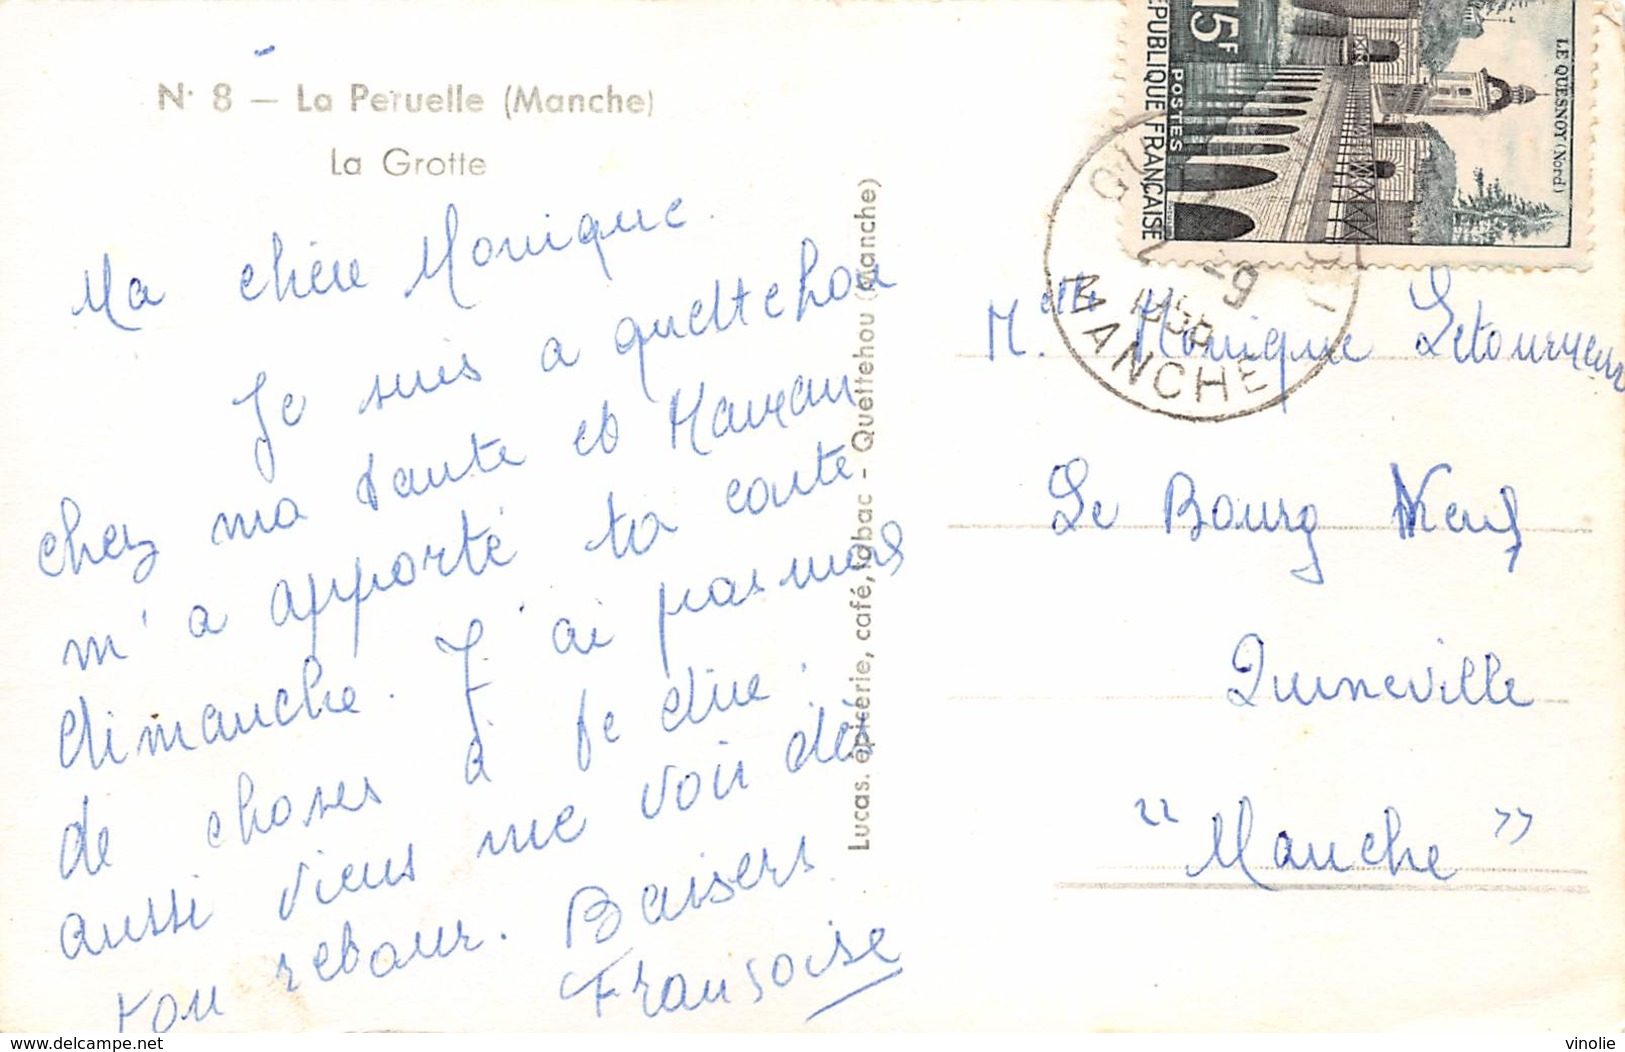 N° 8 — La Peruelle (Manche)
La Grotte
Ma chère Monique.
Je suis a quettehou
chez ma tante et Maman
m'a apporté ta carte
dimanche. J'ai pas mal
de choses à te dire.
aussi viens me voir dés
ton retour. Baisers
Françoise
Lucas. épicerie, café, tabac - Quettehou (Manche)
15F
POSTES
REPUBLIQUE FRANÇAISE
LE QUESNOY (Nord)
-9
MANCHE
Melle Monique Letourneur
Le Bourg Neuf
Quineville
"Manche"
delcampe.net
vinolie